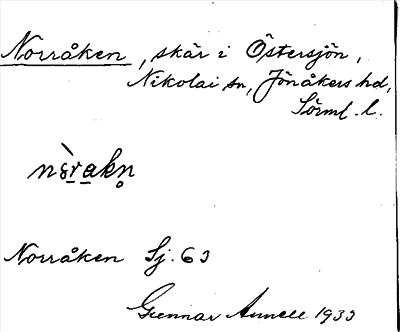 Norråken, skär i Östersjön,
Nikolai sn, Jönåkers hd,
Sörml. l.
Norråken Sj. 63
Gunnar Annell 1933